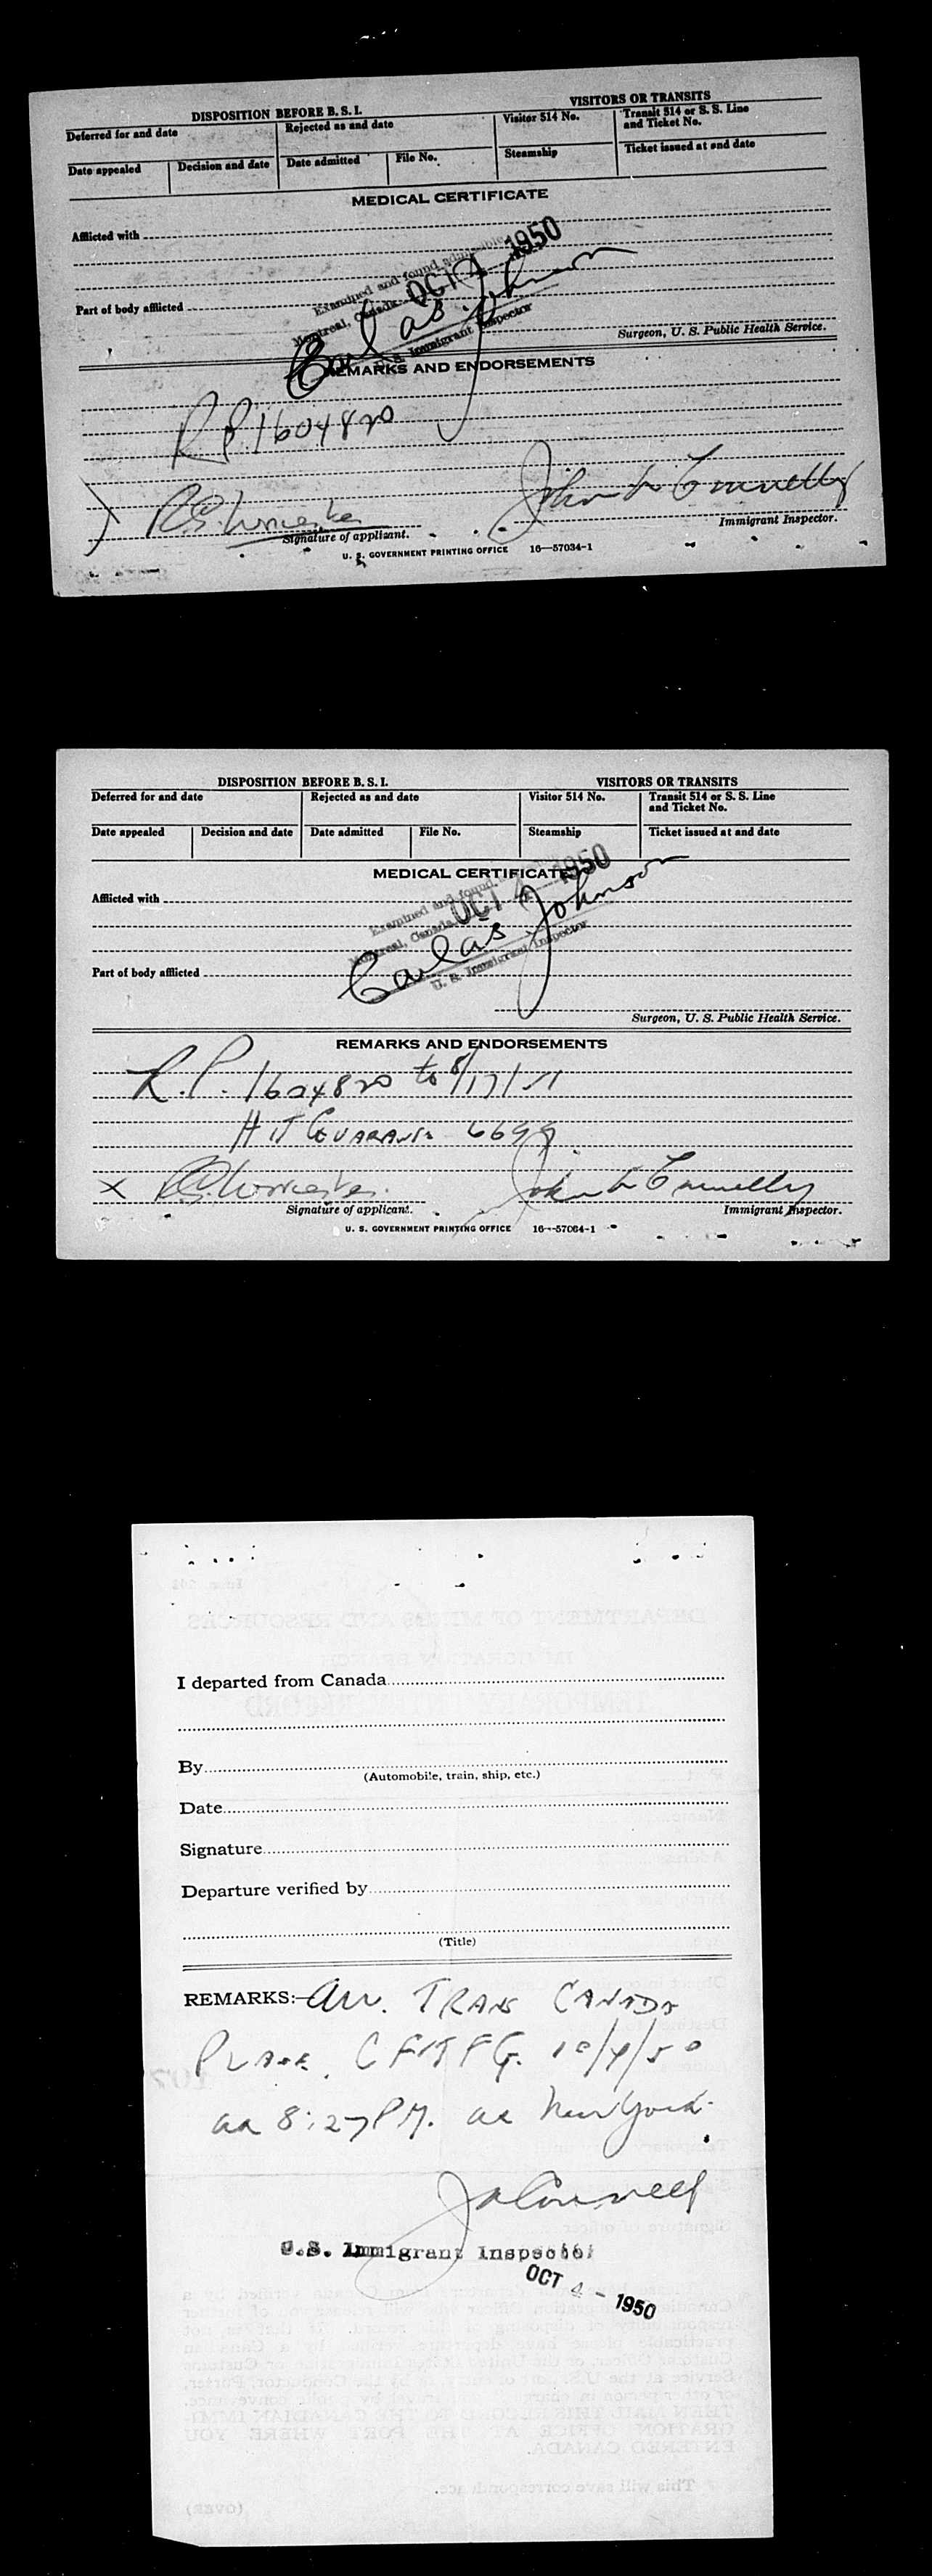 DISPOSITION BEFORE B. S. I.
VISITORS OR TRANSITS
Deferred for and date
Rejected as and date
Visitor 514 No.
Transit 514 or S. S. Line and Ticket No.
Date appealed
Decision and date
Date admitted
File No.
Steamship
Ticket issued at and date
MEDICAL CERTIFICATE
Afflicted with
Examined and found admissible
Montreal, Canada OCT 4 1950
Carl as Johnson
U. S. Immigrant Inspector
Part of body afflicted
Surgeon, U. S. Public Health Service.
REMARKS AND ENDORSEMENTS
R.P. 1604820
Signature of applicant.
Immigrant Inspector.
U. S. GOVERNMENT PRINTING OFFICE 16—57034-1
DISPOSITION BEFORE B. S. I.
VISITORS OR TRANSITS
Deferred for and date
Rejected as and date
Visitor 514 No.
Transit 514 or S. S. Line and Ticket No.
Date appealed
Decision and date
Date admitted
File No.
Steamship
Ticket issued at and date
MEDICAL CERTIFICATE
Afflicted with
Examined and found
Montreal, Canada OCT 4 1950
Carl as Johnson
U. S. Immigrant Inspector
Part of body afflicted
Surgeon, U. S. Public Health Service.
REMARKS AND ENDORSEMENTS
R.P. 1604820 to 8/17/51
X
Signature of applicant.
Immigrant Inspector.
U. S. GOVERNMENT PRINTING OFFICE 16—57034-1
I departed from Canada
By
(Automobile, train, ship, etc.)
Date
Signature
Departure verified by
(Title)
REMARKS:— Arr. TRANS CANADA
PLANE CFTFG. 10/4/50
at 8:27 PM. at New York.
U.S. Immigrant Inspector
OCT 4 - 1950